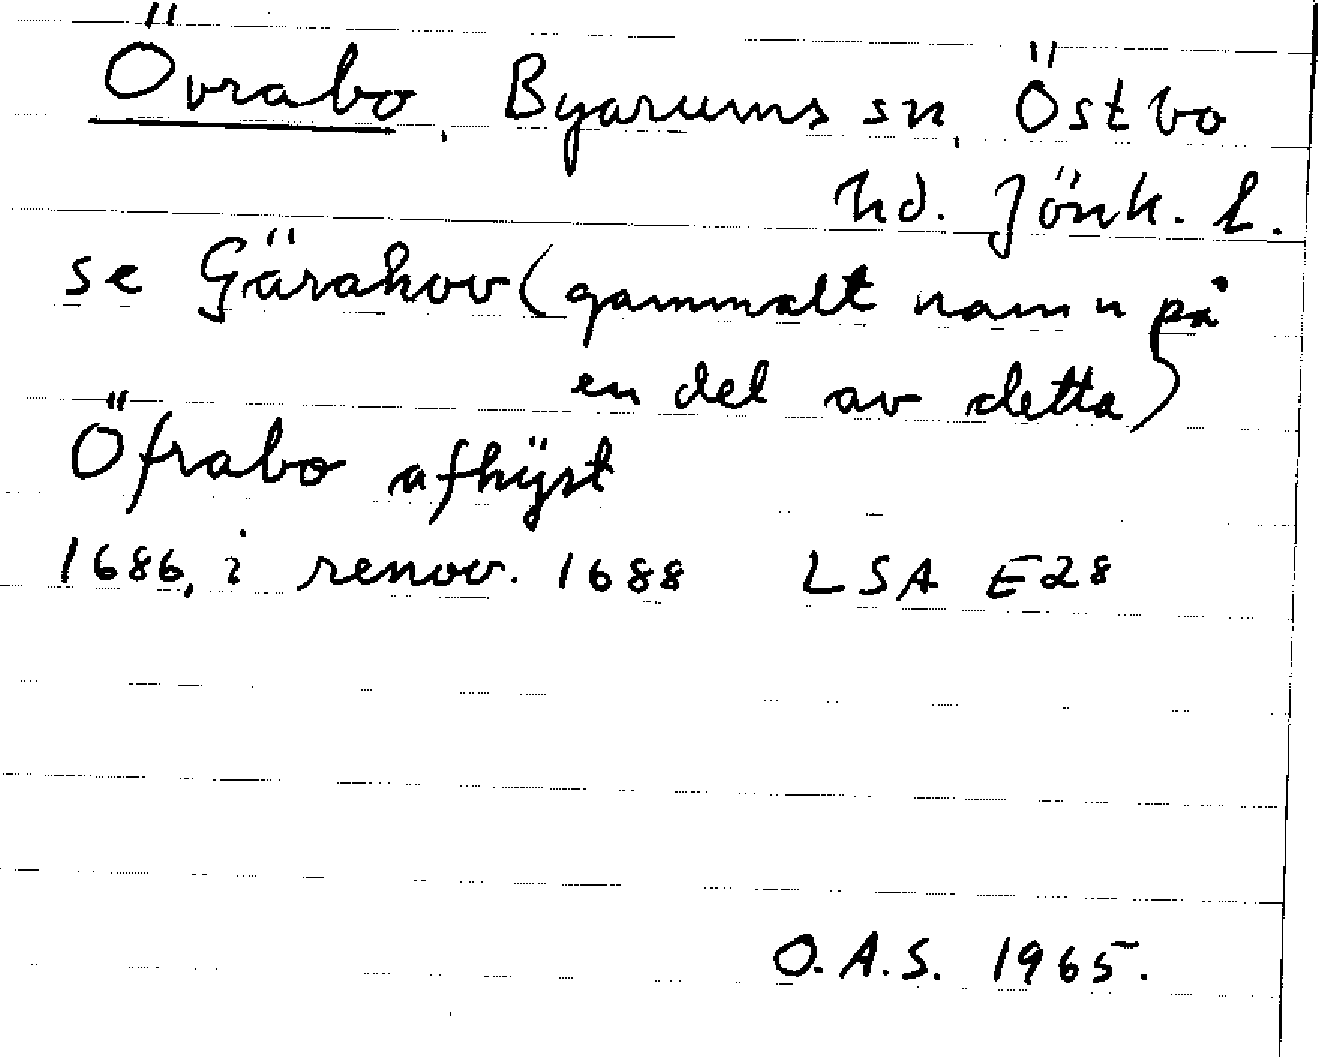 Övrabo, Byarums sn, Östbo
hd. Jönk. l.
se Gärahov (gammalt namn på
en del av detta)
Öfrabo afhÿst
1686, i renov. 1688 LSA E28
O.A.S. 1965.